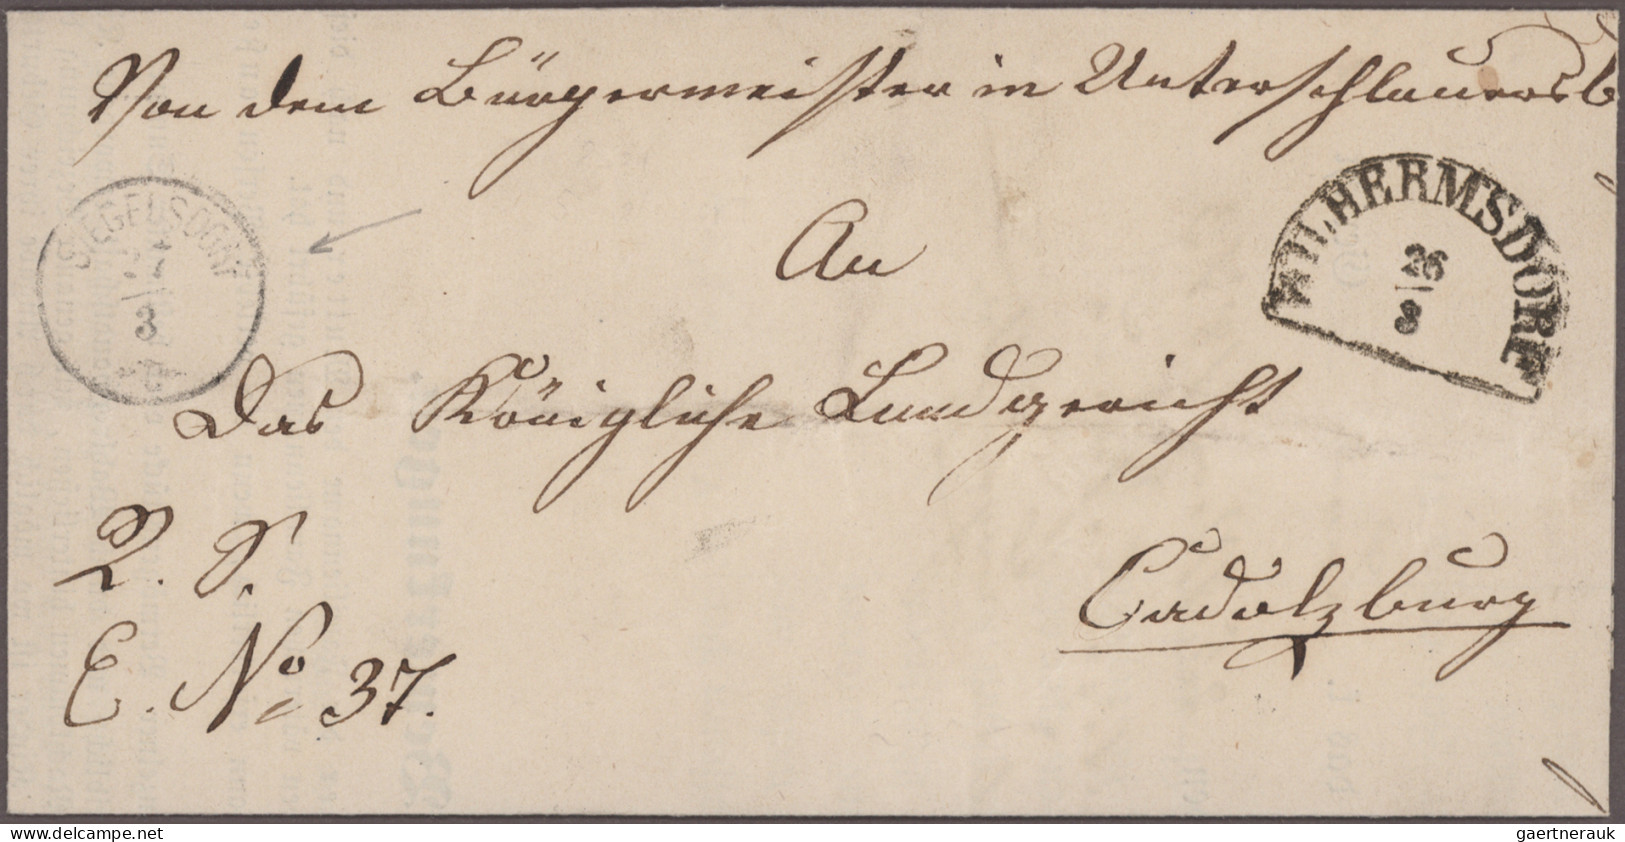 Von dem Bürgermeister in Unterschlauersb
SIEGELSDORF
WILHERMSDORF
26
8
An
3
Das Königliche Landgericht
Cadolzburg
E. No 37.
www.delcampe.net
gaertnerauk